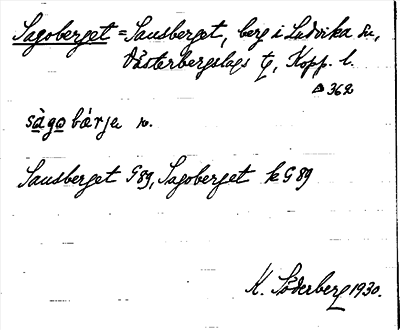 Sagoberget = Sausberget, berg i Ludvika sn,
Västerbergslags tg, Kopp. l.
△ 362
sàgobærje n.
Sausberget G89, Sagoberget k G89
K. Söderberg 1930.